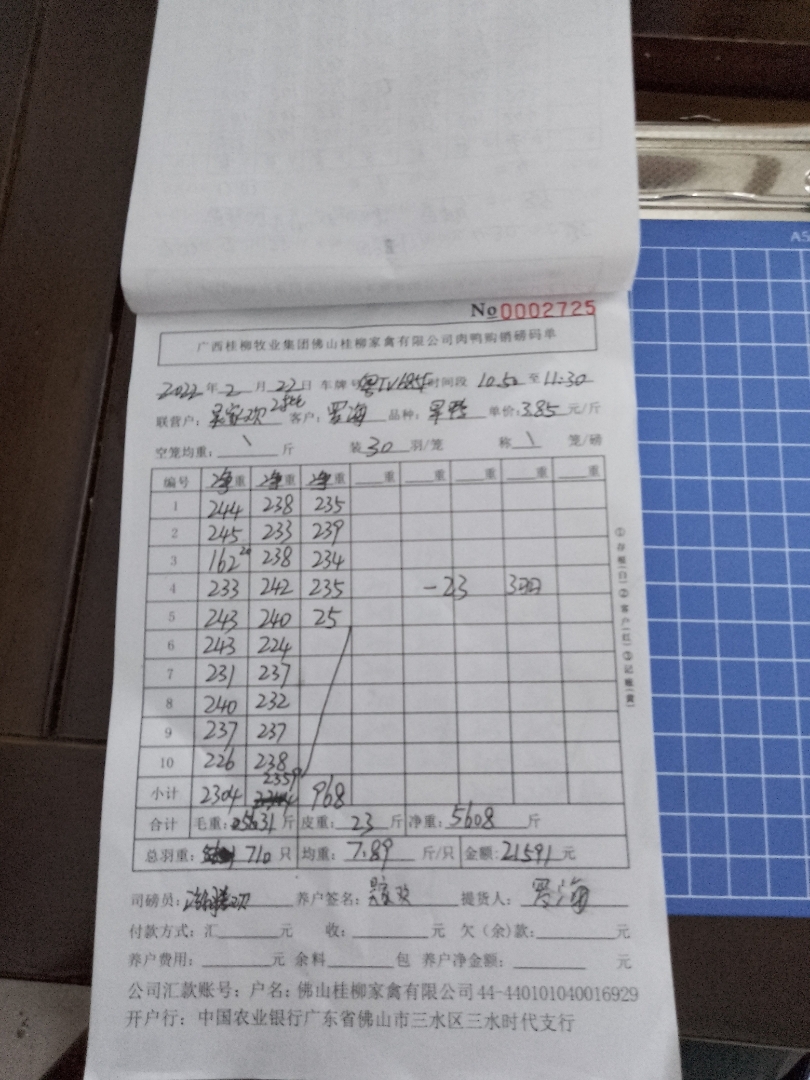 No 0002725
广西桂柳牧业集团佛山桂柳家禽有限公司肉鸭购销磅码单
2022年2月22日 车牌号 粤TV685 时间段 10.50 至 11:30
联营户: 吴家欢 2批 客户: 罗海 品种: 单价: 3.85 元/斤
空笼均重: \ 斤 装 30 羽/笼 称 \ 笼/磅
编号 净重 净重 净重 重 重 重 重 重
1 244 238 235
2 245 233 239
3 162 20 238 234
4 233 242 235 -23 3
5 243 240 25
6 243 224
7 231 237
8 240 232
9 237 237
10 226 238
小计 2304 2359 968
合计 毛重: 5631 斤 皮重: 23 斤 净重: 5608 斤
总羽重: 710 只 均重: 7.89 斤/只 金额: 21591 元
司磅员: 养户签名: 提货人: 罗海
付款方式: 汇 元 收: 元 欠(余)款: 元
养户费用: 元 余料 包 养户净金额: 元
公司汇款账号: 户名: 佛山桂柳家禽有限公司 44-440101040016929
开户行: 中国农业银行广东省佛山市三水区三水时代支行
①存根(白)②客户(红)③记账(黄)
A5